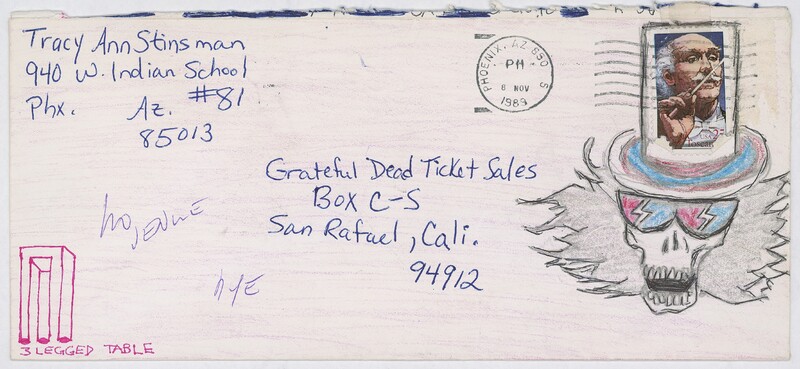 Tracy Ann Stinsman
940 W. Indian School
#81
Phx. Az.
85013
PHOENIX, AZ 850
PM
8 NOV
1989
Grateful Dead Ticket Sales
Box C-S
San Rafael, Cali.
94912
NYE
3 LEGGED TABLE